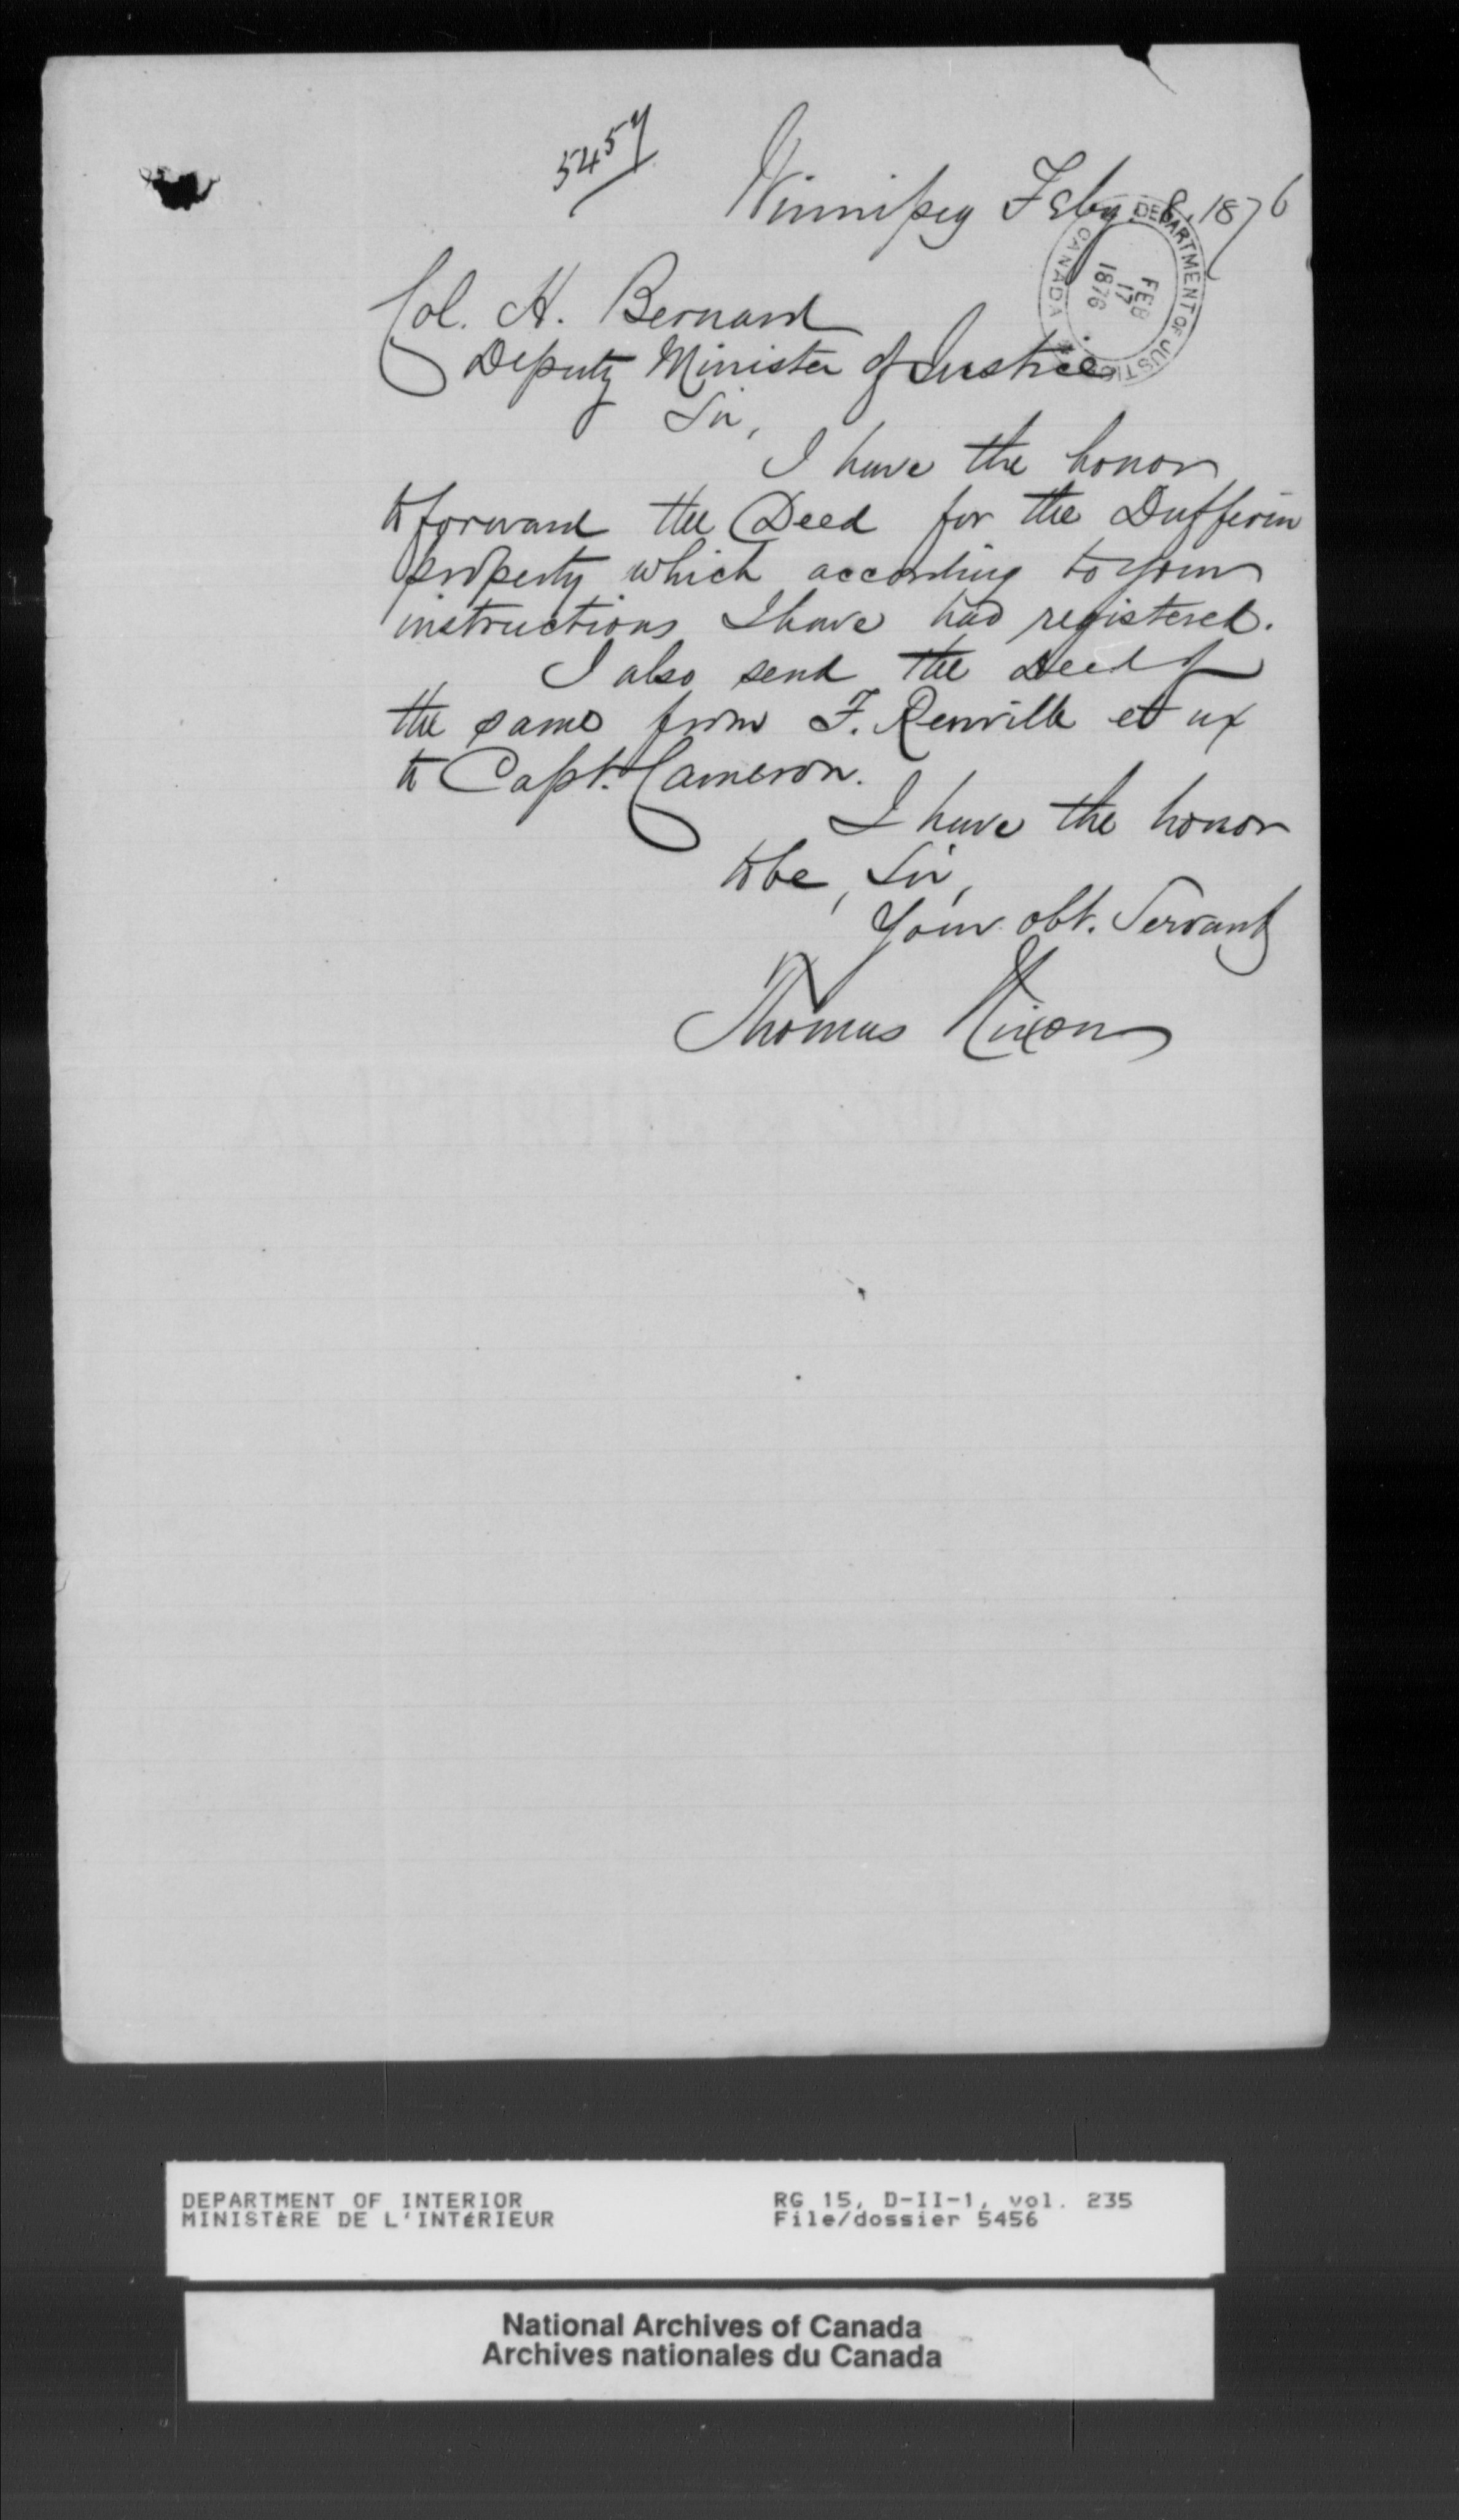 5457
Winnipeg Feby. 8, 1876
DEPARTMENT OF JUSTICE
FEB
17
1876
CANADA
Col. H. Bernard
Deputy Minister of Justice
Sir,
I have the honor
to forward the Deed for the Dufferin
property which according to your
instructions I have had registered.
I also send the Deed of
the same from F. Renville et ux
to Capt. Cameron.
I have the honor
to be, Sir,
Your obt. Servant
Thomas Nixon
DEPARTMENT OF INTERIOR
MINISTÈRE DE L'INTÉRIEUR
RG 15, D-II-1, vol. 235
File/dossier 5456
National Archives of Canada
Archives nationales du Canada